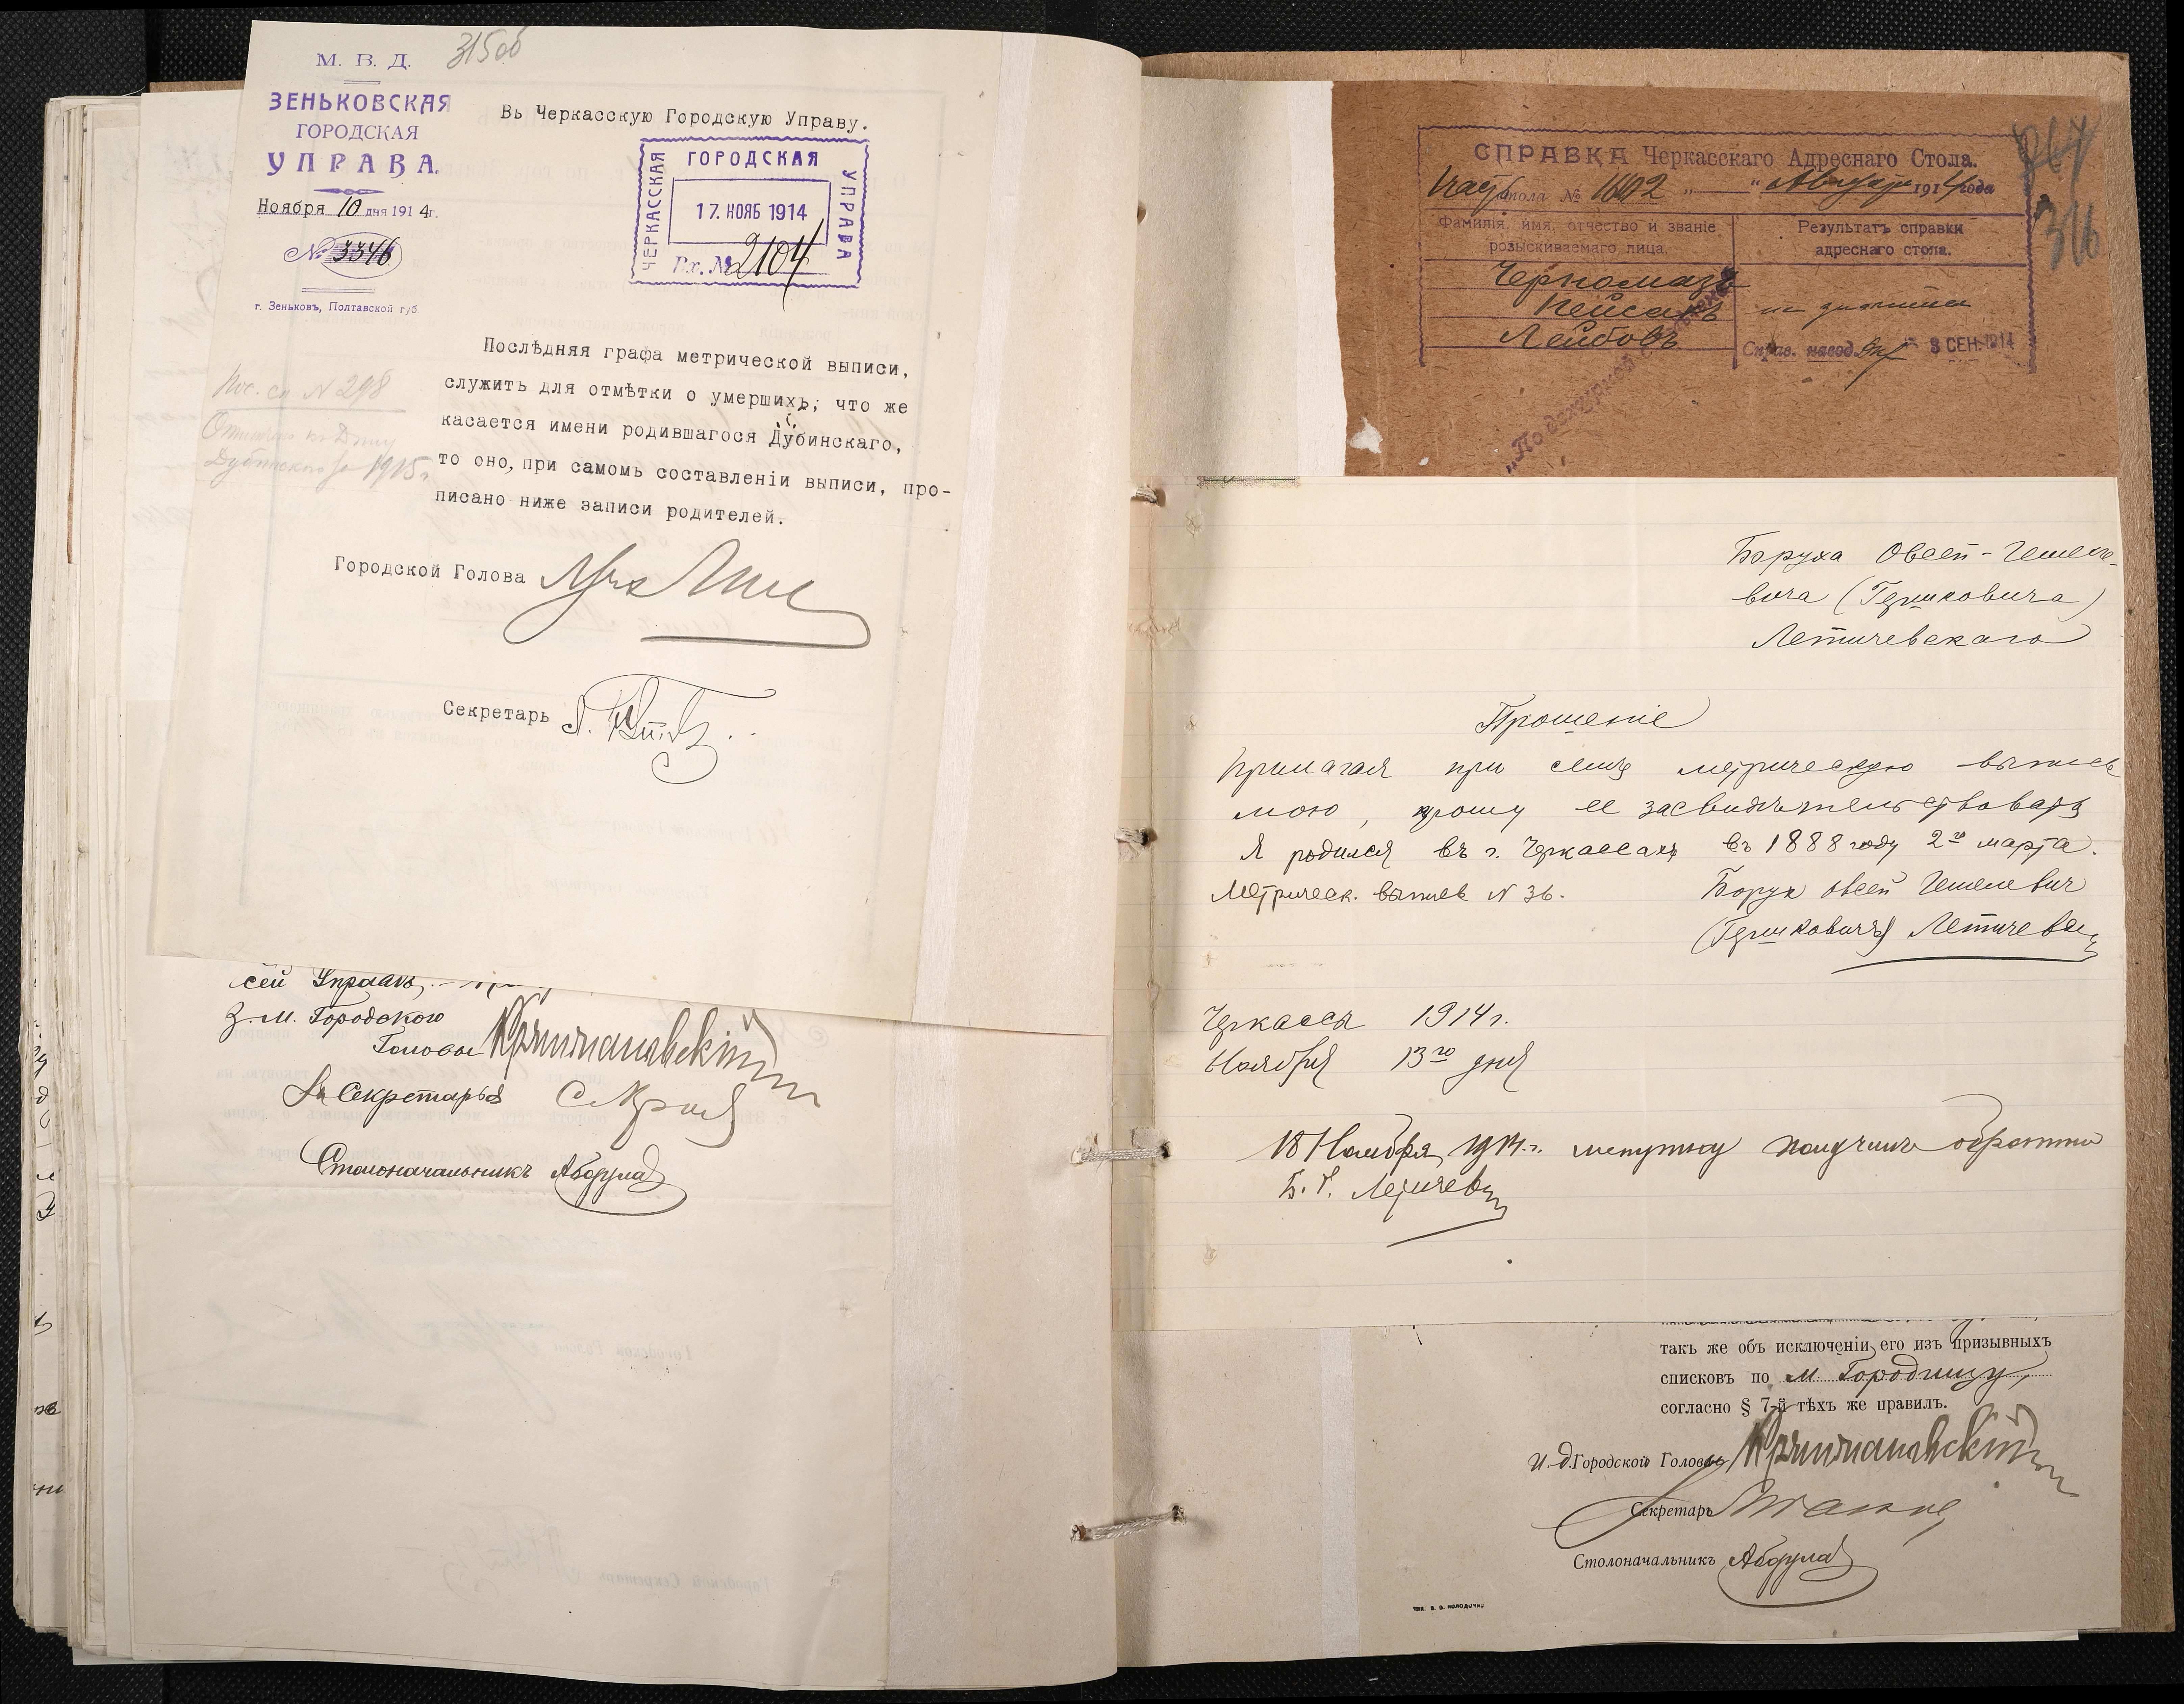 315об
М. В. Д.
ЗЕНЬКОВСКАЯ
ГОРОДСКАЯ
УПРАВА.
Ноября 10 дня 1914г.
№ 3346
г. Зеньковъ, Полтавской губ
Въ Черкасскую Городскую Управу.
ЧЕРКАССКАЯ ГОРОДСКАЯ УПРАВА
17. НОЯБ 1914
Вх. № 2104
Послѣдняя графа метрической выписи,
служитъ для отмѣтки о умершихъ; что же
касается имени родившагося Дубинскаго,
то оно, при самомъ составленіи выписи, про-
писано ниже записи родителей.
Пос. сп N 298
Дубинского 1915 г
Городской Голова
Секретарь
сей Управѣ,
З. М. Городского
Головы
За Секретаря
Столоначальникъ
267
316
СПРАВКА Черкасскаго Адреснаго Стола.
стола № 1602 " " Августа 1914 года
Фамилія, имя, отчество и званіе
розыскиваемаго лица.
Результатъ справки
адреснаго стола.
Черномазъ
Пейсахъ
Лейбовъ
не значится
Справ. навод.
3 СЕН. 1914
Боруха Овсей-Гешеле-
вича (Гершковича)
Летичевскаго
Прошеніе
Прилагая при семъ метрическую выпись
мою, прошу ее засвидѣтельствовать
Я родился въ г. Черкассахъ въ 1888 году 2го марта.
Метрическ. выпись N 36.
Борух Овсей Гешелевич
(Гершкович) Летичевск
Черкассы 1914 г.
Ноября 13го дня
18 Ноября 1914 г. метрику получилъ обратно
Б. Г. Летичевск
такъ же объ исключеніи его изъ призывныхъ
списковъ по м Городищу,
согласно § 7-й тѣхъ же правилъ.
И. д. Городской Головы
Секретарь
Столоначальникъ